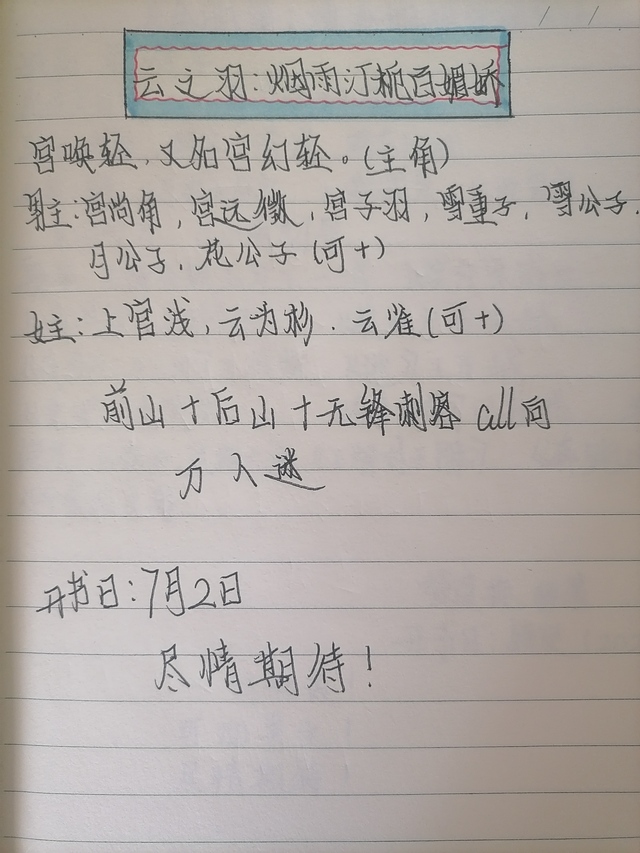 云之羽:烟雨汀桅百媚娇
宫唤轻,又名宫幻轻。(主角)
男主:宫尚角,宫远徵,宫子羽,雪重子,雪公子,
月公子,花公子(可+)
女主:上官浅,云为衫.云雀(可+)
前山+后山+无锋刺客 all向
万人迷
开书日:7月2日
尽情期待!